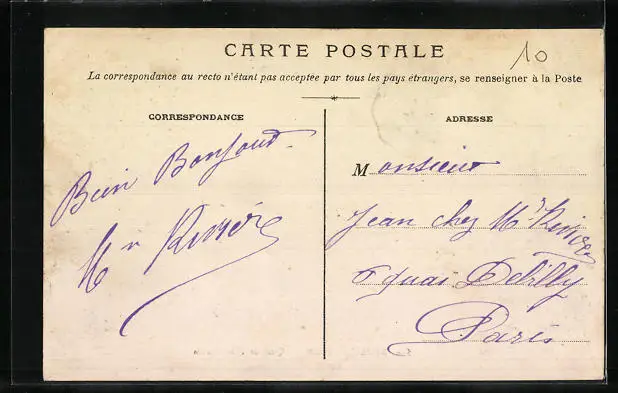 10
CARTE POSTALE
La correspondance au recto n'étant pas acceptée par tous les pays étrangers, se renseigner à la Poste
CORRESPONDANCE
ADRESSE
Bien Bonjour
Monsieur
Jean chez Mr
quai Debilly
Paris